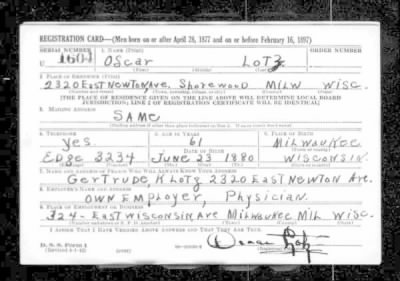 REGISTRATION CARD—(Men born on or after April 28, 1877 and on or before February 16, 1897)
SERIAL NUMBER 1. NAME (Print) ORDER NUMBER
U 1604 Oscar LOTZ
(First) (Middle) (Last)
2. PLACE OF RESIDENCE (Print)
2320 East Newton Ave. Shorewood MILW WISC.
(Number and street) (Town, township, village, or city) (County) (State)
[THE PLACE OF RESIDENCE GIVEN ON THE LINE ABOVE WILL DETERMINE LOCAL BOARD
JURISDICTION; LINE 2 OF REGISTRATION CERTIFICATE WILL BE IDENTICAL]
3. MAILING ADDRESS
SAME
[Mailing address if other than place indicated on line 2. If same insert word same]
4. TELEPHONE 5. AGE IN YEARS 6. PLACE OF BIRTH
Yes. 61 Milwaukee
DATE OF BIRTH (Town or county)
EDGE 3234 June 23 1880 WISCONSIN.
(Exchange) (Number) (Mo.) (Day) (Yr.) (State or country)
7. NAME AND ADDRESS OF PERSON WHO WILL ALWAYS KNOW YOUR ADDRESS
Gertrude, K Lotz 2320 East Newton Ave.
8. EMPLOYER'S NAME AND ADDRESS
OWN Employer, Physician.
9. PLACE OF EMPLOYMENT OR BUSINESS
324- East Wisconsin Ave Milwaukee Mil WISC.
(Number and street or R. F. D. number) (Town) (County) (State)
I AFFIRM THAT I HAVE VERIFIED ABOVE ANSWERS AND THAT THEY ARE TRUE.
D. S. S. Form 1
(Revised 4-1-42) (over) Oscar Lotz